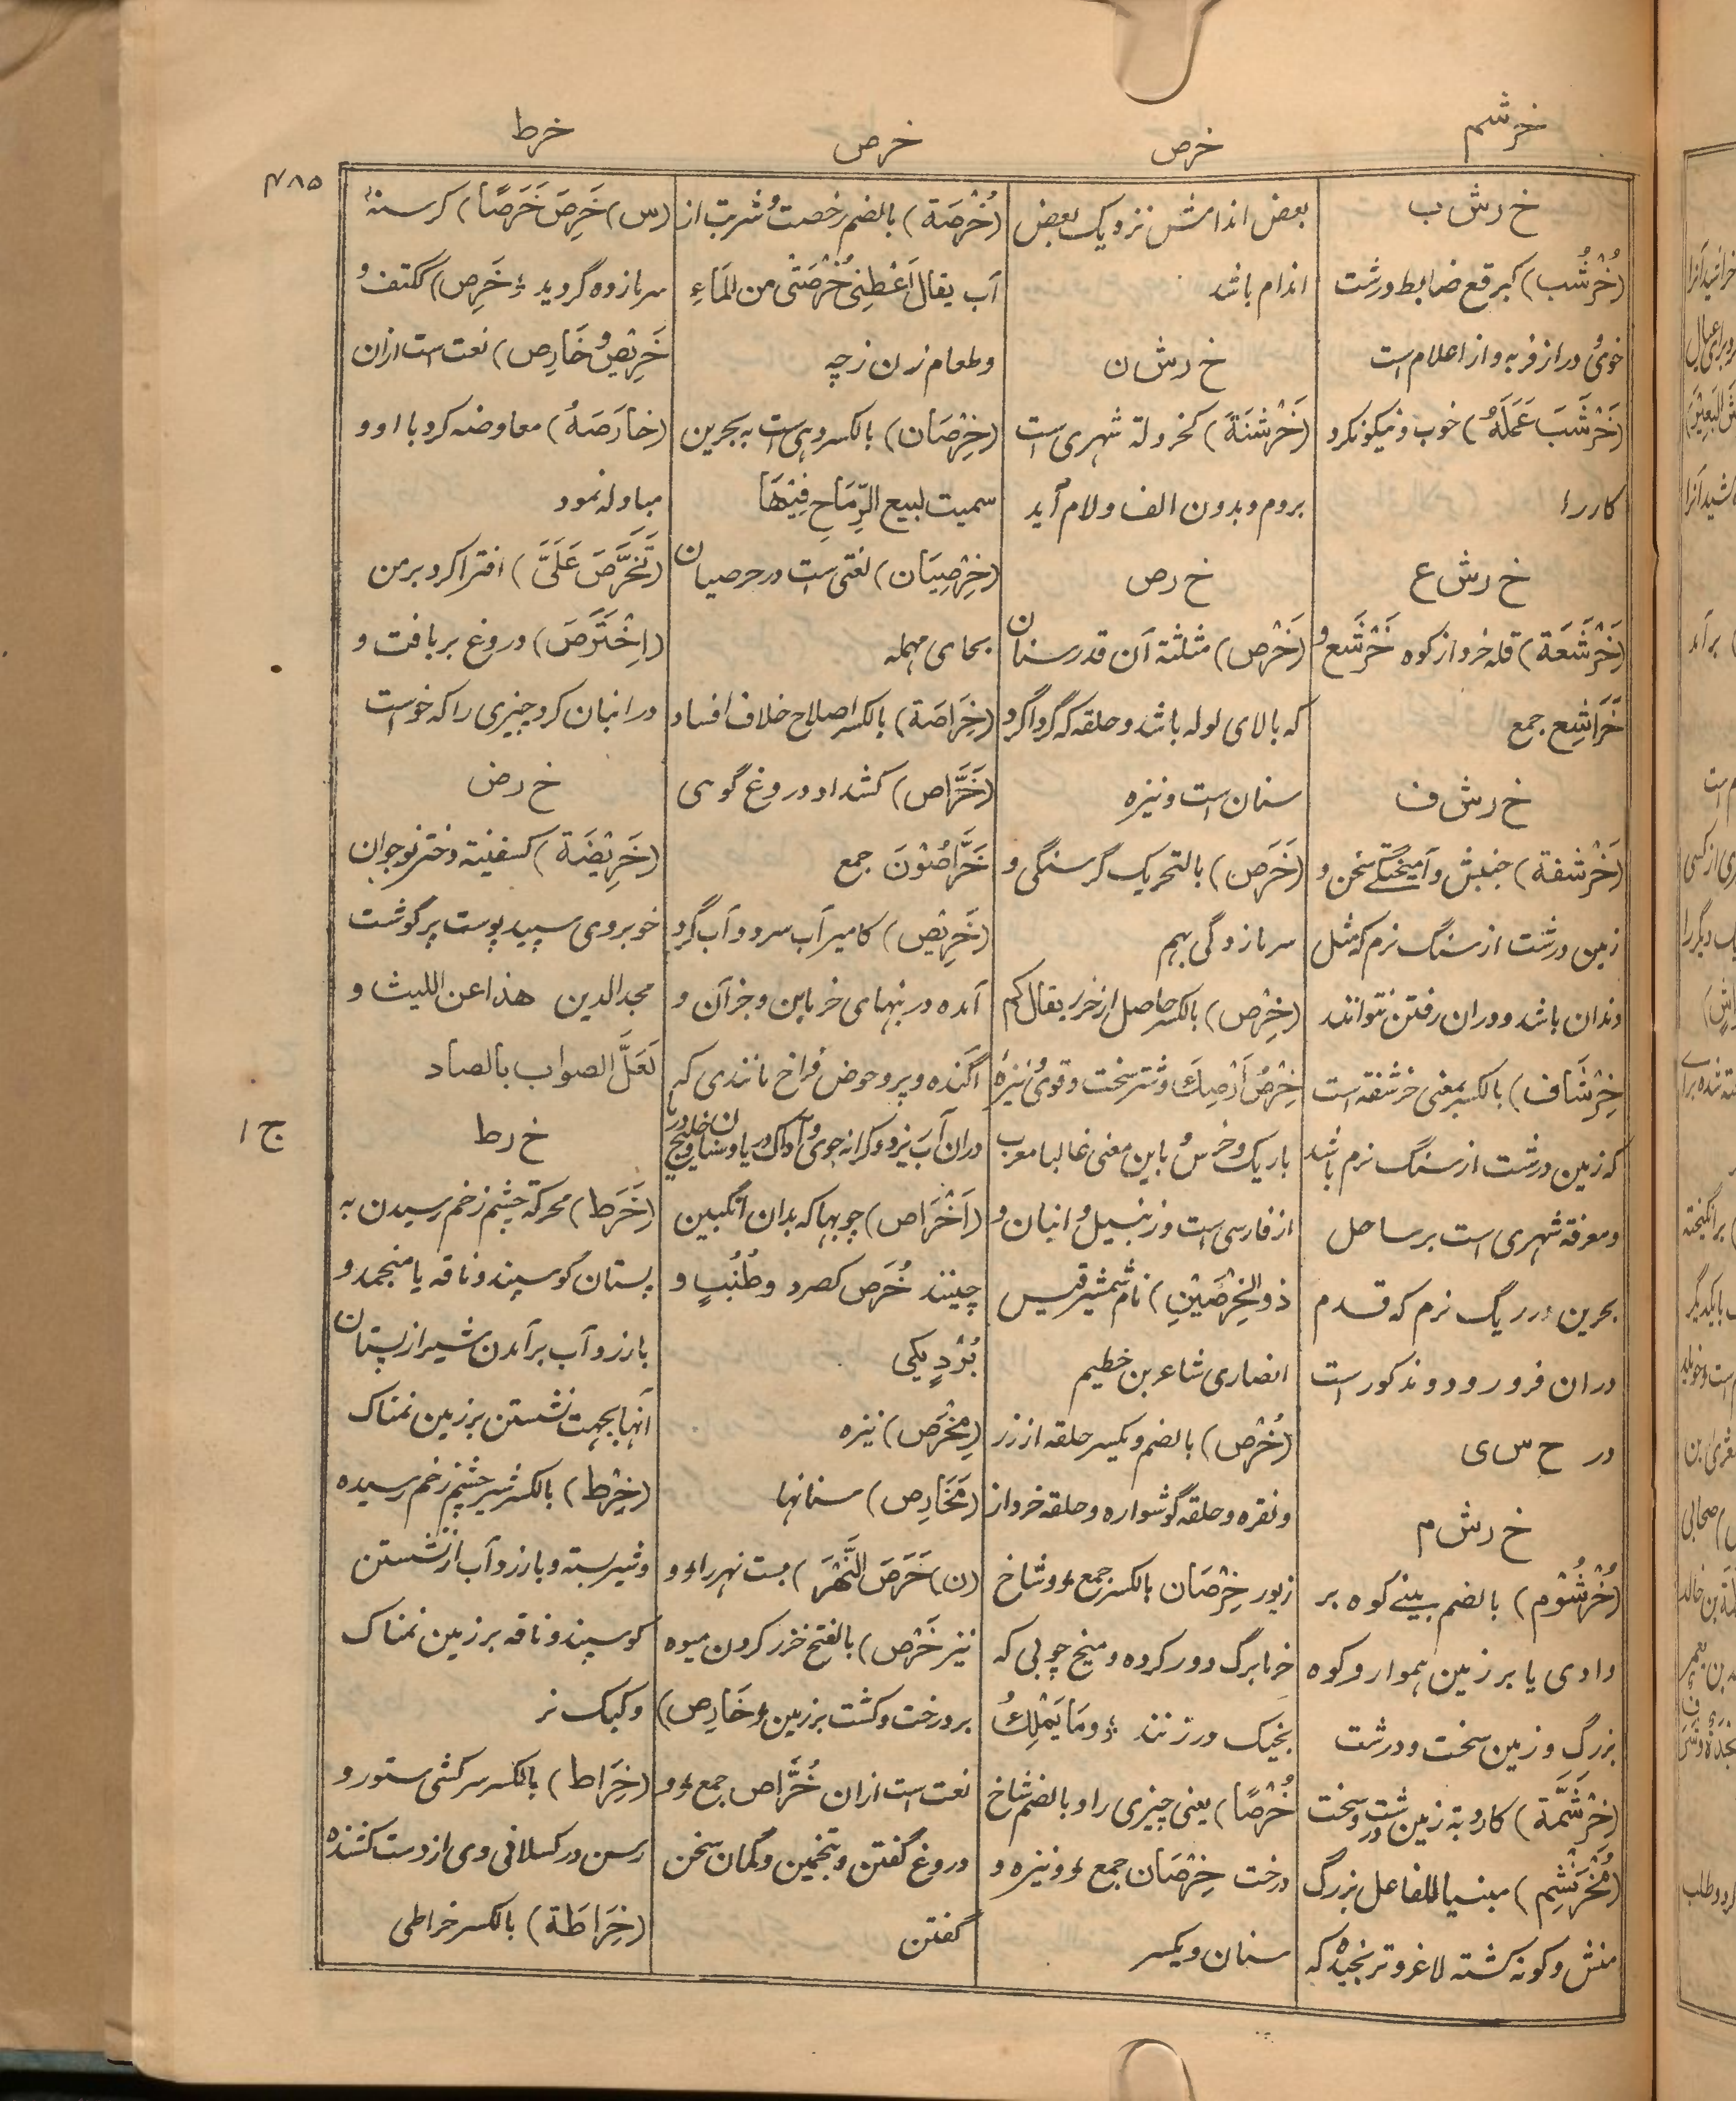 خرشم
خرص
خرص
خرط
۴۸۵
خ رش ب
(خُرْشُب) کبرقع ضابط ودرشت
خوی و دراز فربه و از اعلام است
(خَرْشَبَ عَمَلَهُ) خوب و نیکو نکرد
کار را
خ رش ع
(خَرْشَعَة) قله خرد از کوه خَرْشَع و
خَرَاشِع جمع
خ رش ف
(خَرْشفة) جنبش و آمیختگی سخن و
زمین درشت از سنگ نرم که مثل
دندان باشد و دران رفتن نتوانند
خِرْشَاف) بالکسر بمعنی خرشفة است
که زمین درشت از سنگ نرم باشد
ومعرفة شهری است بر ساحل
بحرین در ریگ نرم که قدم
دران فرو رود و مذکور است
در ح س ی
خ رش م
(خُرْشُوْم) بالضم بینی کوه بر
وادی یا بر زمین هموار و کوه
بزرگ و زمین سخت و درشت
(خِرْشَمَّة) کاردبة زمین درشت وسخت
(مُخْرَنْشِم) مبنیا للفاعل بزرگ
منش و کونه گشته لاغر و ترنجیده که
بعض اندامش نزدیک بعض
اندام باشد
خ رش ن
(خَرْشَنَة) کخردلة شهری است
بروم و بدون الف و لام آید
خ رص
(خَرْص) مثلثة آن قدر سنان
که بالای لوله باشد و حلقه که گرداگرد
سنان است و نیزه
(خَرَص) بالتحریک گرسنگی و
سرمازدگی بهم
(خِرْص) بالکسر حاصل از خرز یقال کم
خِرْصُ اَرْضِكَ و شتر سخت و قوی و نیزهٔ
باریک و خرس باین معنی غالبا معرب
از فارسی است و زنبیل و انبان و
ذو الخِرْصَیْنِ) نام شمشیر قیس
انصاری شاعر بن خطیم
(خُرْص) بالضم و یکسر حلقه از زر
و نقره و حلقه گوشواره و حلقه خرد از
زیور خِرْصَان بالکسر جمع و شاخ
خرما برگ دور کرده و میخ چوبی که
بخیک درزنند و مَا یَمْلِكُ
خُرْصًا) یعنی چیزی را و بالضم شاخ
درخت خِرْصَان جمع و نیزه و
سنان و یکسر
(خُرْصَة) بالضم رخصت و شربت از
آب یقال اَعْطِنِیْ خُرْصَتْی من المَاءِ
و طعام زن زچه
(خِرْصَان) بالکسر دهی است به بحرین
سمیت لبیع الرِّمَاحِ فِیْهَا
(خِرْصِیَان) لغتی است در حرصیان
بحای مهمله
(خِرَاصَة) بالکسر اصلاح خلاف افساد
(خَرَّاص) کشداد دروغ گوی
خَرَّاصُوْنَ جمع
(خَرِیْص) کامیر آب سرد و آب گرد
آمده در بنهای خرما بن و جز آن و
آگنده و پر و حوض فراخ مانندی که
دران آب ریزد و کرانه جوی
(اَخْرَاص) چوبها که بدان انگبین
چینند خُرَص کصرد و طُنُبٍ و
بُرْدٍ یکی
(مِخْرَص) نیزه
(مَخَارِص) سنانها
(ن) خَرَصَ النَّهْرَ) بست نهر را و
نیز خَرْص) بالفتح خزر کردن میوه
بر درخت و کشت بر زمین خَارِص)
نعت است ازان خُرَّاص جمع و
دروغ گفتن و بتخمین و گمان سخن
گفتن
(س) خَرِصَ خَرَصًا) گرسنه
سرمازده گردید خَرِص) ککتف و
خَرِیْص و خَارِص) نعت است ازان
(خَارَصَهُ) معاوضه کرد با او و
مبادله نمود
(تَخَرَّصَ عَلَیَّ) افترا کرد بر من
(اِخْتَرَصَ) دروغ بر بافت و
در انبان کرد چیزی را که خواست
خ رض
(خَرِیْضَة) کسفینة دختر نوجوان
خوبروی سپید پوست پر گوشت
مجد الدین هذا عن اللیث و
لَعَلَّ الصواب بالصاد
خ رط
(خَرَط) محرکة چشم زخم رسیدن به
پستان گوسپند و ناقه یا منجمد و
با زرد آب برآمدن شیر از پستان
آنها بجهت نشستن بر زمین نمناک
(خِرْط) بالکسر شیر چشم زخم رسیده
و شیر بسته و با زرد آب از نشستن
گوسپند و ناقه بر زمین نمناک
و کبک نر
(خِرَاط) بالکسر سرکشی ستور و
رسن در کسلانی وی از دست کشنده
(خِرَاطَة) بالکسر خراطی
ج ۱